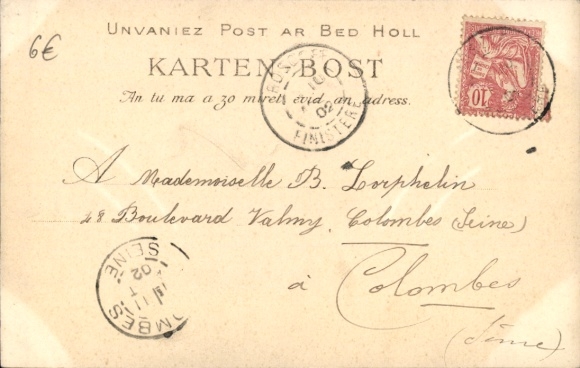 Unvaniez Post ar Bed Holl
6€
KARTEN-BOST
An tu ma a zo miret evid an adress.
FINISTERE
02
10
A Mademoiselle B. Lorphelin
48 Boulevard Valmy, Colombes (Seine)
à Colombes
(Seine)
SEINE
02
11
OMBES